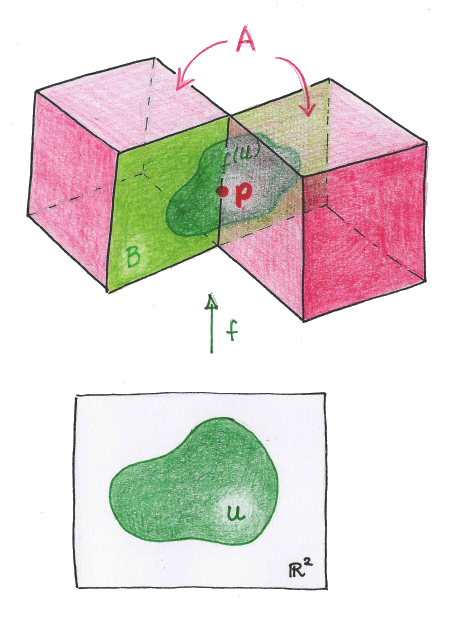 A
f(u)
p
B
f
u
ℝ²